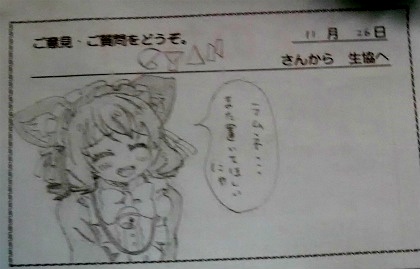 ご意見・ご質問をどうぞ。
11月 26日
さんから 生協へ
ラムネ…
また置いてほしい
にゃ